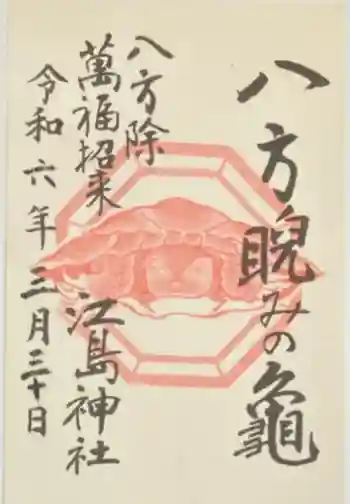 八方睨みの亀
八方除
萬福招来
江島神社
令和六年三月三十日